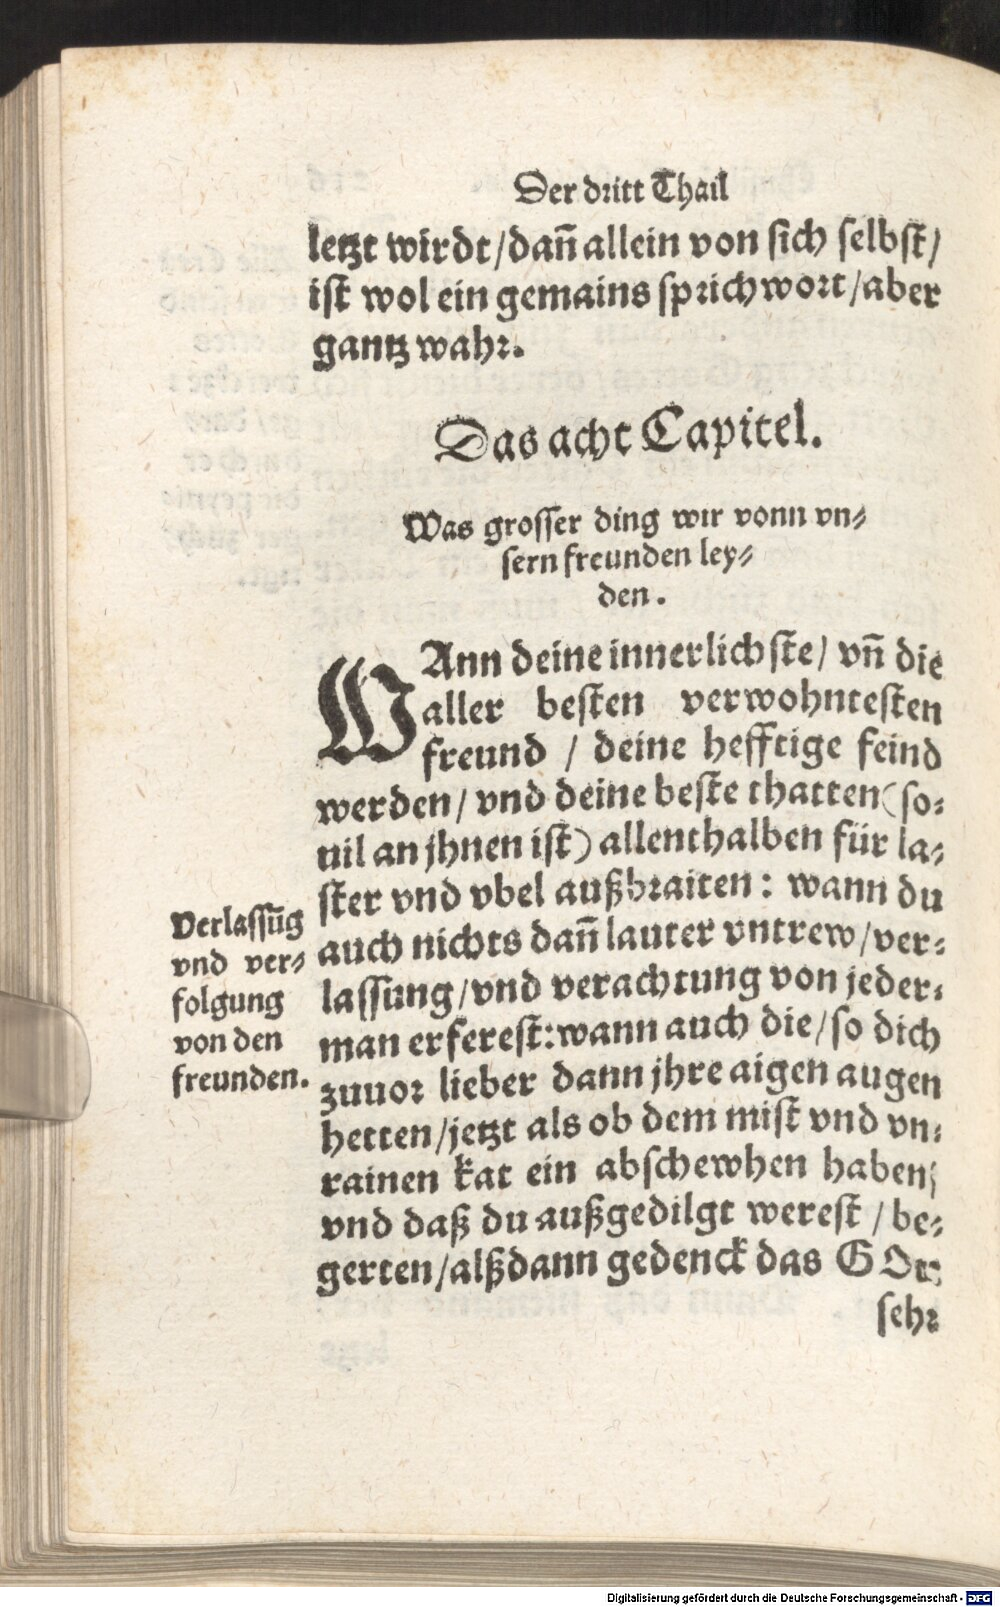 Der dritt Thail
letzt wirdt/dañ allein von sich selbst/
ist wol ein gemains sprichwort/aber
gantz wahr.
Das acht Capitel.
Was grosser ding wir vonn vn⸗
sern freunden ley⸗
den.
WAnn deine innerlichste/ vñ die
aller besten verwohntesten
freund / deine hefftige feind
werden/ vnd deine beste thatten (so⸗
uil an jhnen ist) allenthalben für la⸗
ster vnd vbel außbraiten: wann du
auch nichts dañ lauter vntrew/ver⸗
lassung/vnd verachtung von jeder⸗
man erferest: wann auch die/so dich
zuuor lieber dann jhre aigen augen
hetten/jetzt als ob dem mist vnd vn⸗
rainen kat ein abschewhen haben/
vnd daß du außgedilgt werest / be⸗
gerten/alßdann gedenck das GOtt
sehr
Verlassũg
vnd ver⸗
folgung
von den
freunden.
Digitalisierung gefördert durch die Deutsche Forschungsgemeinschaft - DFG